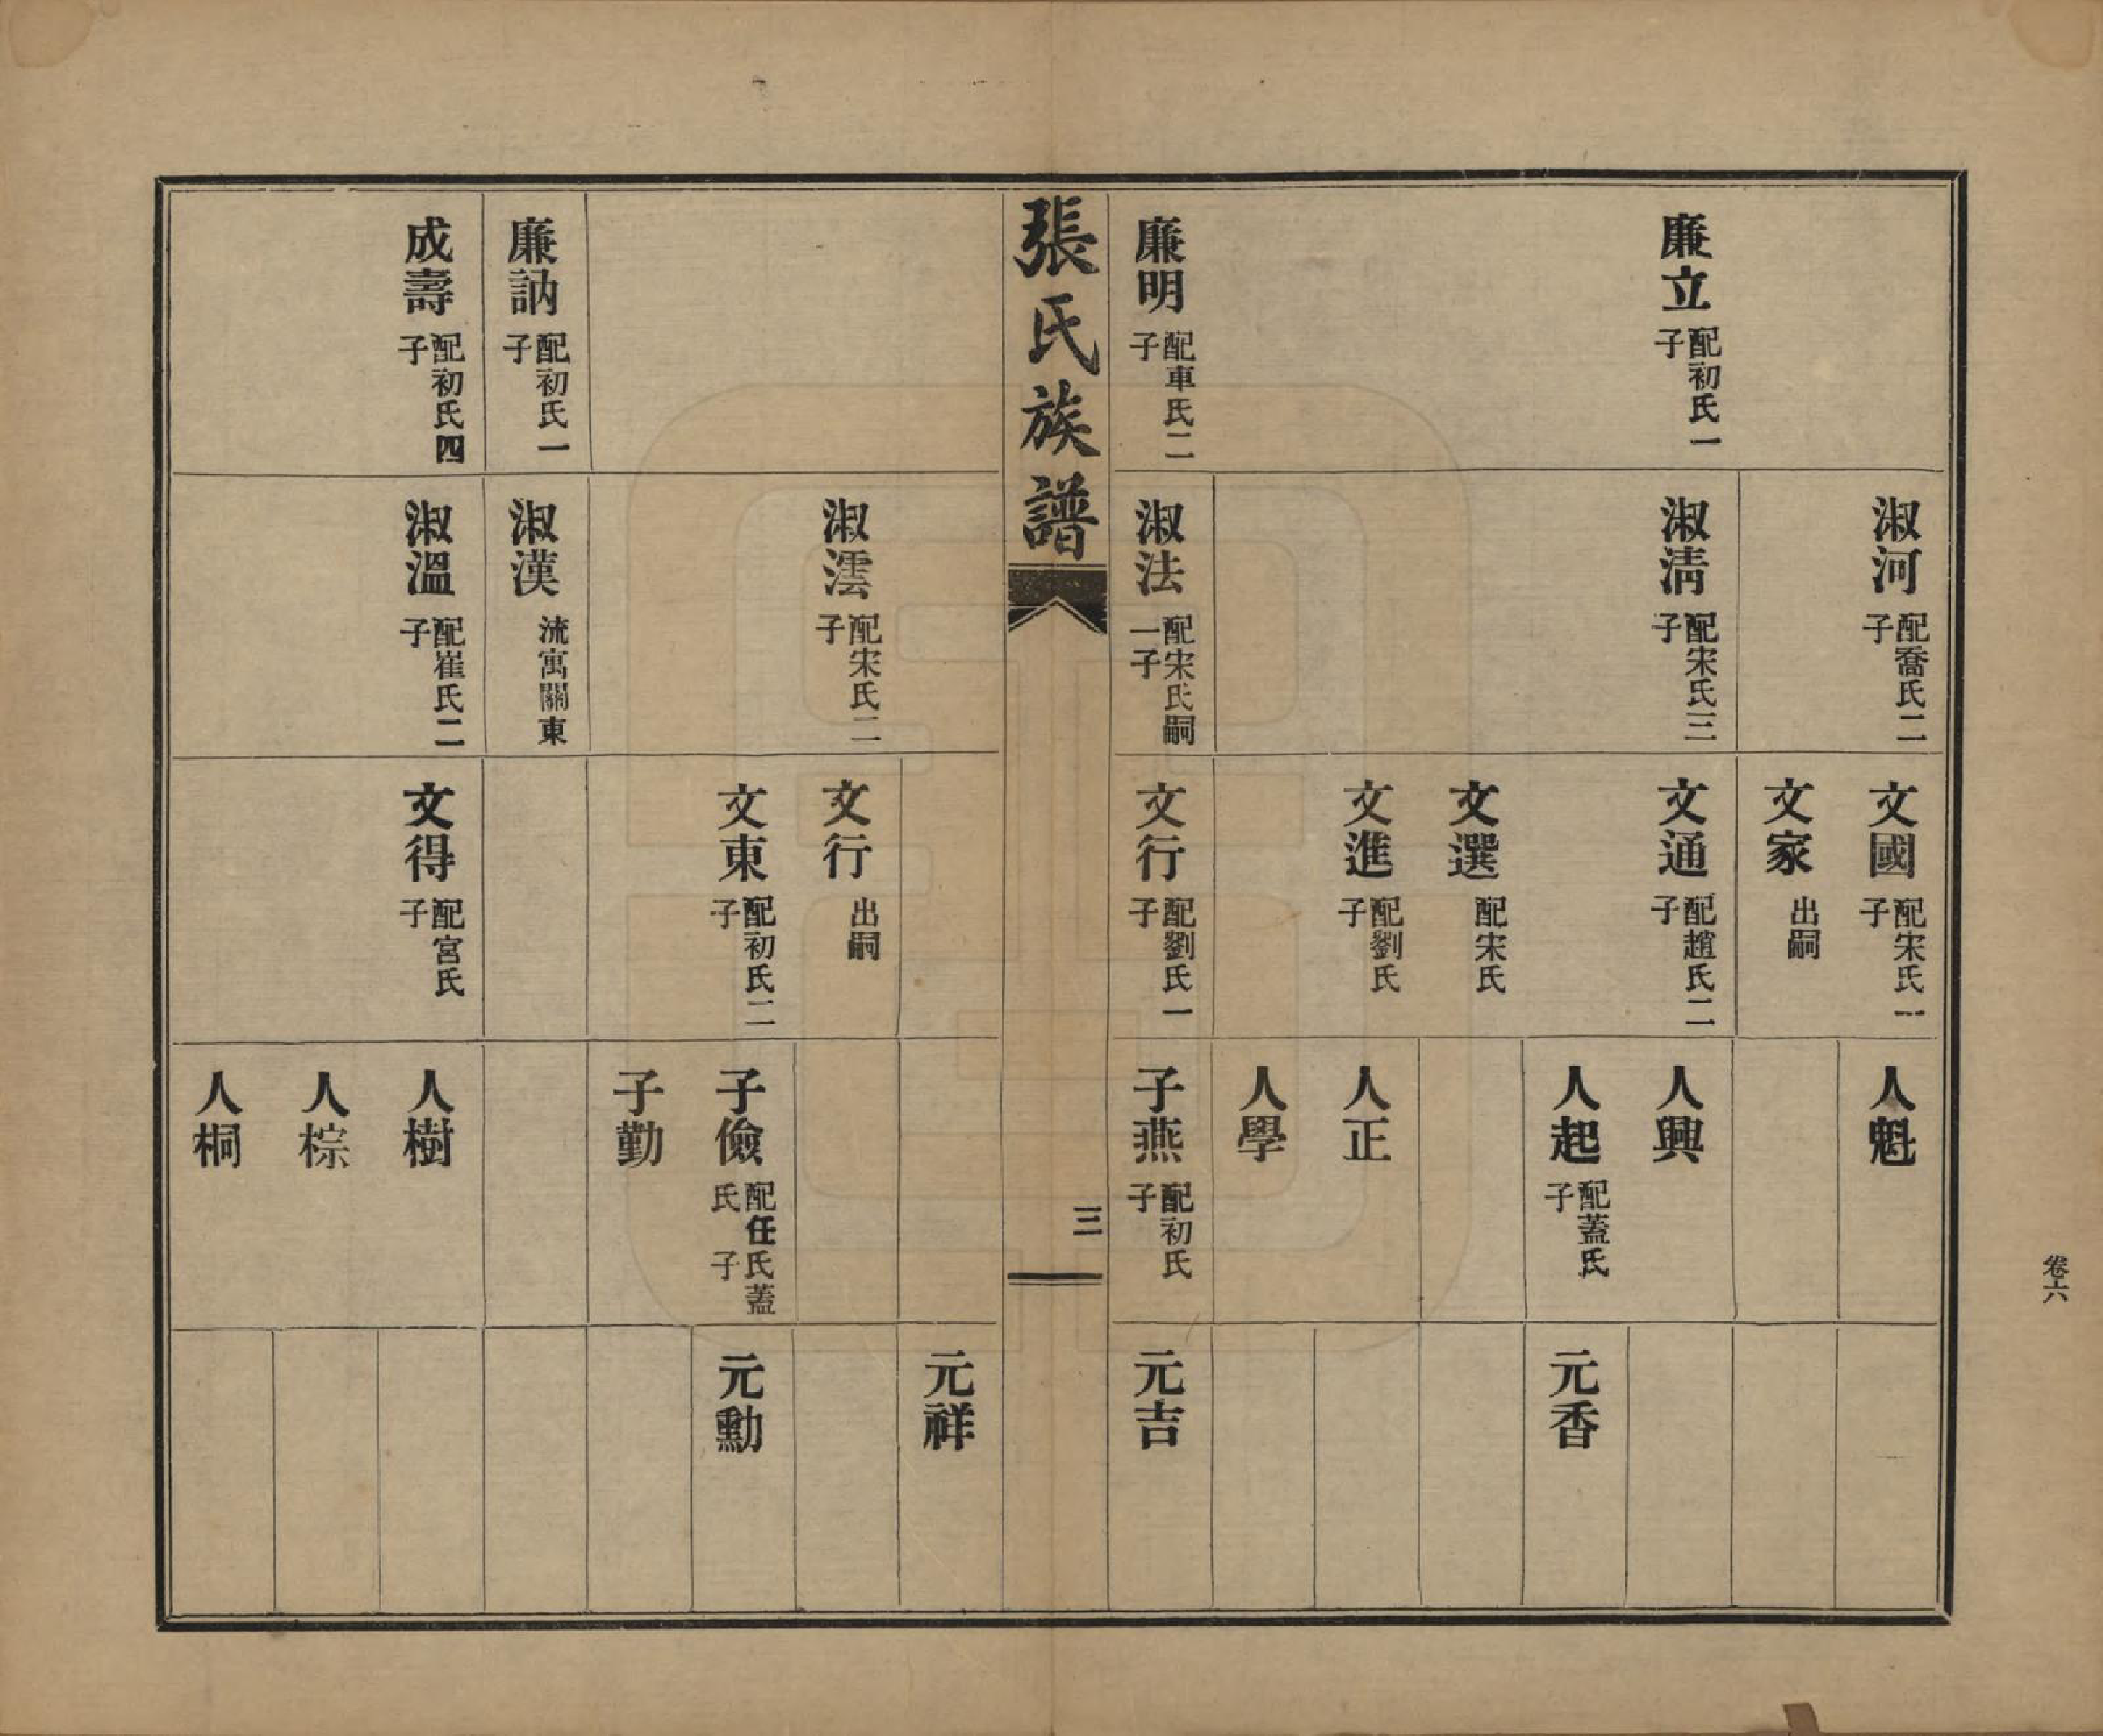 廉立 配初氏一子
廉明 配車氏二子
淑河 配喬氏二子
淑淸 配宋氏三子
淑法 配宋氏嗣一子
文國 配宋氏一子
文家 出嗣
文通 配趙氏二子
文選 配宋氏
文進 配劉氏子
文行 配劉氏一子
人魁
人興
人起 配蓋氏子
人正
人學
子燕 配初氏子
元香
元吉
張氏族譜
三
廉訥 配初氏一子
成壽 配初氏四子
淑澐 配宋氏二子
淑漢 流寓關東
淑溫 配崔氏二子
文行 出嗣
文東 配初氏二子
文得 配宮氏子
子儉 配任氏蓋氏 子
子勤
人樹
人棕
人桐
元祥
元勳
卷六